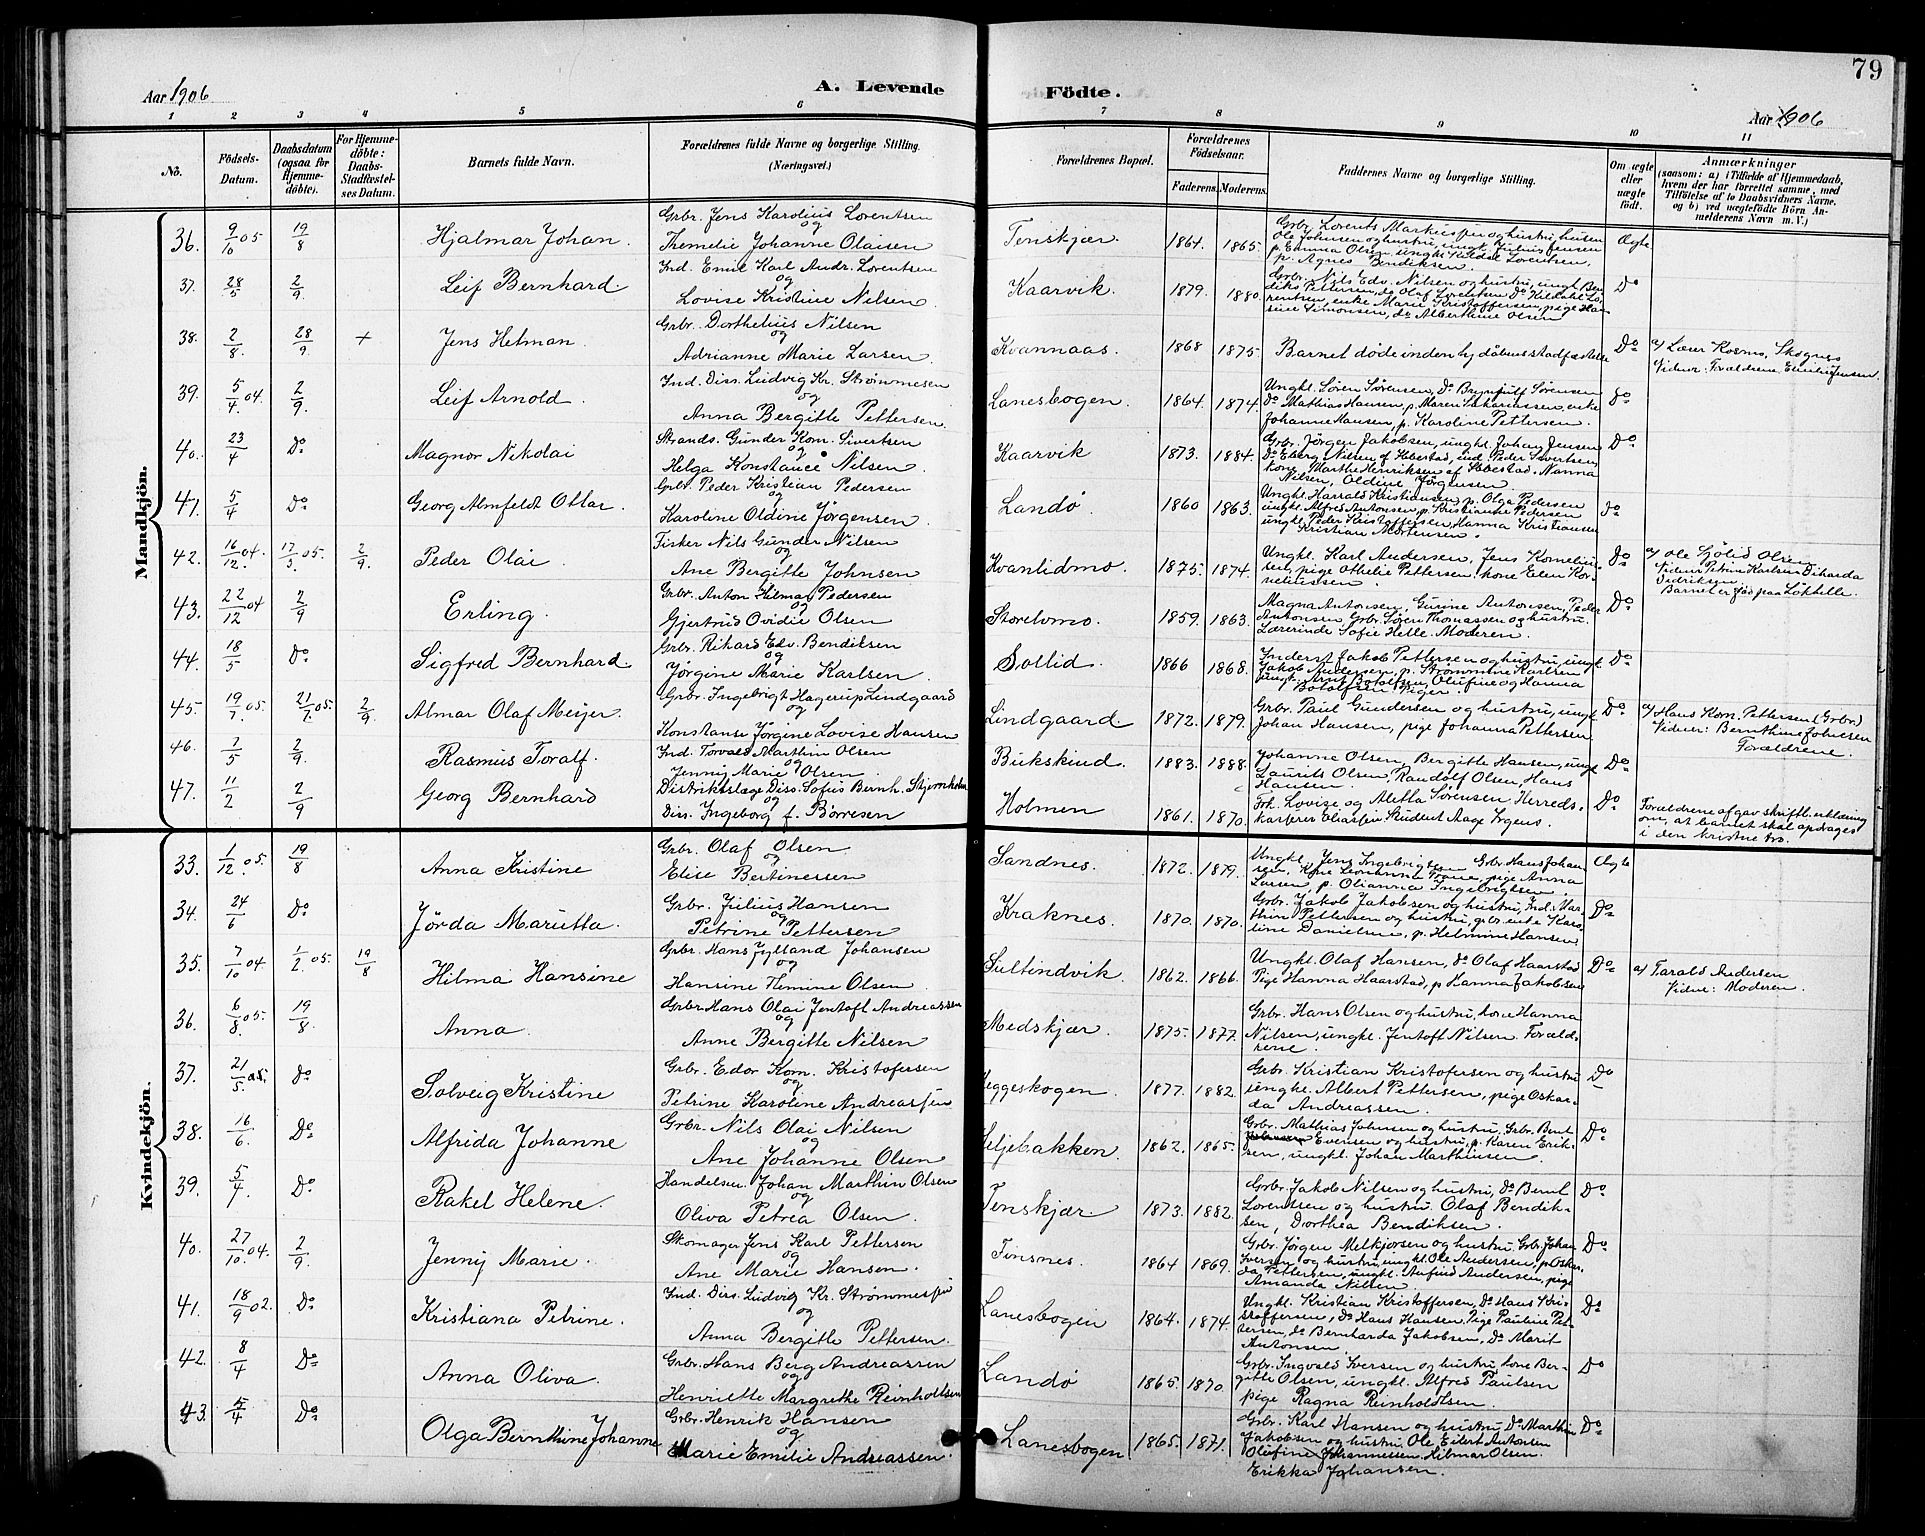 79
Aar 1906
A. Levende Födte.
Aar 1906
1 2 3 4 5 6 7 8 9 10 11
No.
Födsels-Datum.
Daabsdatum (ogsaa for Hjemme-döbte).
For Hjemme-döbte: Daabs-Stadfæstel-ses Datum.
Barnets fulde Navn.
Forældrenes fulde Navne og borgerlige Stilling. (Næringsvei.)
Forældrenes Bopæl.
Forældrenes Födselsaar.
Faderens. Moderens.
Faddernes Navne og borgerlige Stilling.
Om ægte eller uægte födt.
Anmærkninger
(saasom: a) i Tilfælde af Hjemmedaab, hvem der har forrettet samme, med Tilföielse af to Daabsvidners Navne, og b) ved uægtefödte Börn Anmelderens Navn m. V.)
Mandkjön.
36. 9/10 05 19/8 Hjalmar Johan. Grbr. Jens Karolius Lorentsen og Themelie Johanne Olaisen Tenskjær. 1864. 1865. Grbr. Lorents Markussen og hustru, husm. Ole Johnsen og hustru, ungk. Julius Jensen p. Emma Olsen, ungk. Kildal Lorentsen, p. Agnes Bendiksen. Ægte
37. 28/5 2/9 Leif Bernhard Ind. Emil Karl Andr. Lorentsen og Lovise Kristine Nilsen. Kaarvik. 1879. 1880. Grbr. Nils Edv. Nilsen og hustru, ungk. Bendiks Pettersen, do Olaf Lorentsen Do Kildahl Lorentsen, enke Marie Kristoffersen, pige Hansine Simonsen, do Alberthine Olsen Do
38. 2/8 28/9 + Jens Helman. Grbr. Dorthelius Nilsen og Adrianne Marie Larsen. Kvannaas. 1868 1875. Barnet döde inden hj. dåbens stadfæstelse Do a/ Læser Kosmo, Skognes Vidner: Forældrene. Emilie Jensen.
39. 5/4 04. 2/9. Leif Arnold. Ind. Diss. Ludvig Kr. Strømmesen og Anna Bergitte Pettersen. Lanesbogen. 1864. 1874. Ungk. Søren Sørensen, Do Brynjulf Sørensen Do Mathias Hansen, p. Maren Sakariassen, enke Johanne Hansen, p. Karoline Pettersen. Do
40. 23/4 Do Magnor Nikolai Strands. Gunder Korn. Sivertsen og Helga Konstance Nilsen. Kaarvik 1873. 1884. Grbr. Jørgen Jakobsen, ungk. Johan Jensen Do Eberg Nilsen af Ibestad, ind. Peder Sivertsen, kone Marthe Henriksen af Ibbestad, Nanna Nilsen, Oldine Jørgensen. Do
41. 5/4 Do Georg Almfeldt Ottar. Grbr. Peder Kristian Pedersen og Karoline Oldine Jørgensen. Landö. 1860 1863. Ungk. Harrald Kristiansen, p. Olga Pedersen ungk. Alfred Antonsen, p. Kristianne Pedersen ungk. Peder Kristoffersen, Hanna Kristiansen Kristian Mortensen. Do
42. 16/12 04. 17/3 05. 2/9 Peder Olai Fisker Nils Gunder Nilsen og Ane Bergitte Johnsen Kvanlidmo. 1875. 1874. Ungk. Karl Andersen, Jens Korneliussen, pige Othelie Pettersen, kone Elen Korneliussen. Do a/ Ole Sjölid Olsen Vidner Petrine Karlsen Diharda Didriksen. Barnet er fød paa Løktelle.
43. 22/12 04 2/9 Erling. Grbr. Anton Hilmar Pedersen og Gjertrud Ovidie Olsen Storelvmo. 1859. 1863. Magna Antonsen, Gurine Antonsen, Peder Antonsen, Grbr. Søren Thomassen og hustru. Lærerinde Sofie Helle. Moderen. Do
44. 18/5 Do Sigfred Bernhard Grbr. Rikard Edv. Bendiksen og Jørgine Marie Karlsen. Sollid. 1866 1868. Inderst Jakob Pettersen og hustru, ungk. Jakob Andersen, p. Strømmine Karlsen ungk. Arnt Botolfsen, Olufine og Hanna Botolfsen piger. Do
45. 19/7 05. 21/7 05. 2/9 Almar Olaf Meijer. Grbr. Ingebrigt Hagerup Lindgaard og Konstanse Jörgine Lovise Hansen Lindgaard 1872. 1879. Grbr. Paul Gundersen og hustru, ungk. Johan Hansen, pige Johanna Pettersen Do a/ Hans Korn. Pettersen (Grbr.) Vidner: Bernthine Johnsen Forældrene.
46. 7/5 2/9 Rasmus Toralf. Ind. Torvald Marthin Olsen og Jennij Marie Olsen. Bukskind. 1883. 1888. Johanne Olsen, Bergitte Hansen, ungk. Laurits Olsen, Randolf Olsen, Hans Hansen. Do
47. 11/2 2/9 Georg Bernhard Distriktslæge Diss. Sofus Bernh. Stjernholm og Diss. Ingeborg f. Börresen Holmen 1861. 1870. Frk. Lovise og Aletta Sørensen, Herreds-kasserer Eliassen Student Aage Irgens. Do Forældrene afgav skriftl. erklæring om, at barnet skal opdrages i den kristne tro.
Kvindekjön.
33. 1/12 05. 19/8 Anna Kristine Grbr. Olaf Olsen og Elise Bertinessen Sandnes. 1872. 1879. Ungk. Jens Ingebrigtsen Grbr. Hans Johansen, Kone Leonharda Trane, pige Anna Larsen, p. Olianna Ingebrigtsen. Ægte
34. 24/6 Do Jörda Marutta. Grbr. Julius Hansen og Petrine Pettersen Kraknes. 1870. 1870. Grbr. Jakob Jakobsen og hustru, Ind. Marthin Pettersen og hustru, grbr. enke Karoline Danielsen, p. Helmine Hansen Do
35. 7/10 04. 1/2 05. 19/8 Hilma Hansine Grbr. Hans Jylland Johansen og Hansine Flemine Olsen. Sultindvik. 1862. 1866. Ungk. Olaf Hansen, do Olaf Haarstad Pige Hanna Haarstad, p Hanna Jakobsen Do a/ Tarald Andersen Vidne: Moderen.
36. 6/8 05. 19/8. Anna. Grbr. Hans Olai Jentoft Andreassen og Anne Bergitte Nilsen Medskjær. 1875. 1877. Grbr. Hans Olsen og hustru, kone Hanna Nilsen, ungk. Jentoft Nilsen. Forældrene. Do
37. 21/5 05. Do Solveig Kristine Grbr. Edor Korn. Kristofersen og Petrine Karoline Andreassen Heggeskogen. 1877. 1882. Grbr. Kristian Kristofersen og hustru ungk. Albert Pettersen, pige Oskarda Andreassen. Do
38. 16/6. Do Alfrida Johanne Grbr. Nils Olai Nilsen og Ane Johanne Olsen Seljebakken. 1862. 1865. Grbr. Mathias Johnsen og hustru, Grbr. Bernt Evensen og hustru, p. Karen Eriksen, ungk. Johan Marthinsen. Do
39. 5/4 Do Rakel Helene. Handelsm. Johan Marthin Olsen og Oliva Petrea Olsen. Tenskjær 1873. 1882. Grbr. Jakob Nilsen og hustru, Do Bernt Lorentsen og hustru. Olaf Bendiksen, Dorthea Bendiksen. Do
40. 27/10 04. 2/9. Jennij Marie. Skomager Jens Karl Pettersen og Ane Marie Hansen. Finsnes. 1864 1869. Grbr. Jørgen Melkjorsen og hustru. Grbr. Johan Iversen og hustru, ungk. Ole Andersen, p. Oskarda Pettersen, ungk. Anfind Andersen, pige Amanda Nilsen Do
41. 18/9 02. Do Kristiana Petrine. Ind. Diss. Ludvig Kr. Strømmesen og Anna Bergitte Pettersen. Lanesbogen 1864. 1874. Ungk. Kristian Kristoffersen, Do Hans Kristoffersen, Do Hans Hansen, Pige Pauline Pettersen, do Bernharda Jakobsen, Do Marit Antonsen. Do
42. 8/4 Do Anna Oliva. Grbr. Hans Berg Andreassen og Henriette Margrethe Reinholtsen Landö 1865. 1870. Grbr. Ingvald Iversen og hustru, kone Bergitte Olsen, ungk. Alfred Paulsen pige Ragna Reinholdtsen. Do
43. 5/4 Do Olga Bernthine Johanne Grbr. Henrik Hansen og Marie Emilie Andreassen. Lanesbogen 1865. 1871. Grbr. Karl Hansen og hustru, Do Marthin Jakobsen og hustru, Ole Eilert Antonsen Olufine Johannessen, Hilmar Olsen. Erikka Johansen. Do